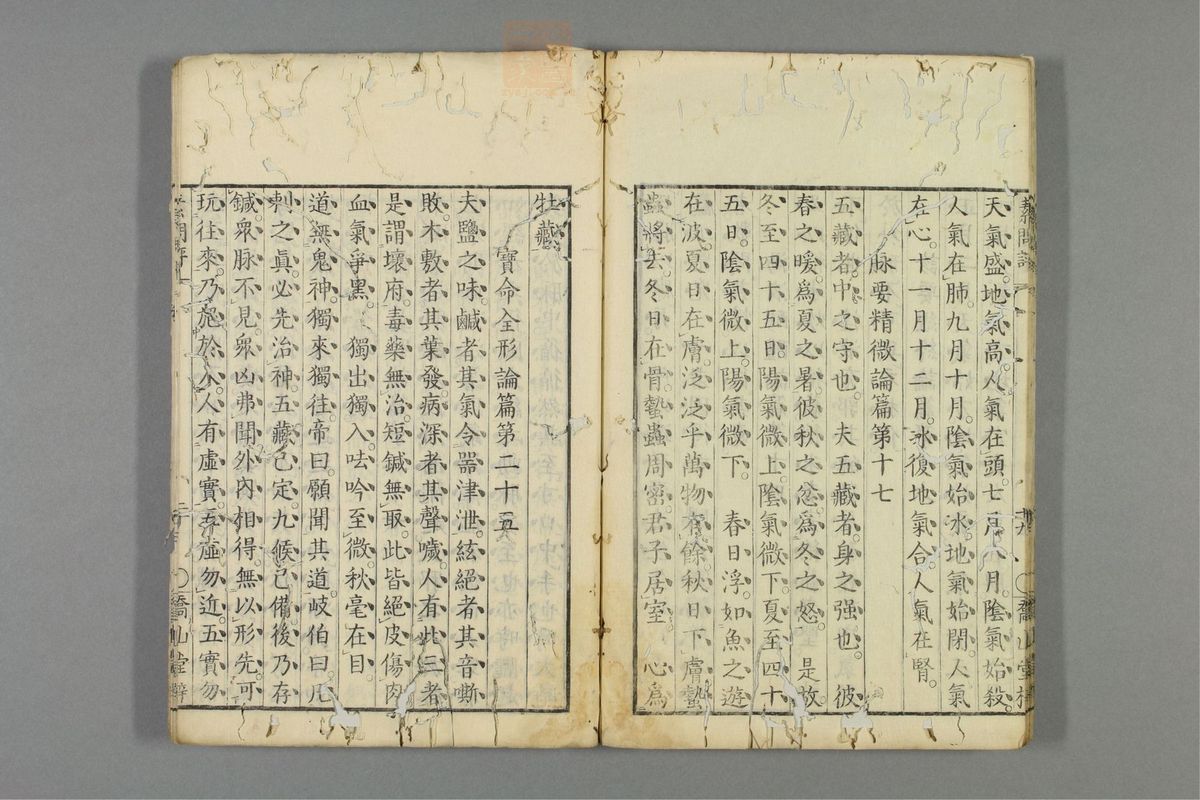 天氣盛地氣高人氣在頭七月八月陰氣始殺
人氣在肺九月十月陰氣始氷地氣始閉人氣
在心十一月十二月氷復地氣合人氣在腎
脉要精微論篇第十七
五藏者中之守也 夫五藏者身之强也 彼
春之暖爲夏之暑彼秋之忿爲冬之怒 是故
冬至四十五日陽氣微上陰氣微下夏至四十
五日陰氣微上陽氣微下 春日浮如魚之遊
在波夏日在膚泛泛乎萬物有餘秋日下膚蟄
蟲將去冬日在骨蟄蟲周密君子居室 心爲
牡藏
寶命全形論篇第二十五
夫鹽之味鹹者其氣令噐津泄絃絕者其音嘶
敗木敷者其葉發病深者其聲噦人有此三者
是謂壞府毒藥無治短鍼無取此皆絕皮傷肉
血氣爭黑 獨出獨入呿吟至微秋毫在目
道無鬼神獨來獨往帝曰願聞其道岐伯曰凡
刺之眞必先治神五藏已定九候已備後乃存
鍼衆脉不見衆凶弗聞外內相得無以形先可
玩往來乃施於人人有虛實五虛勿近五實勿